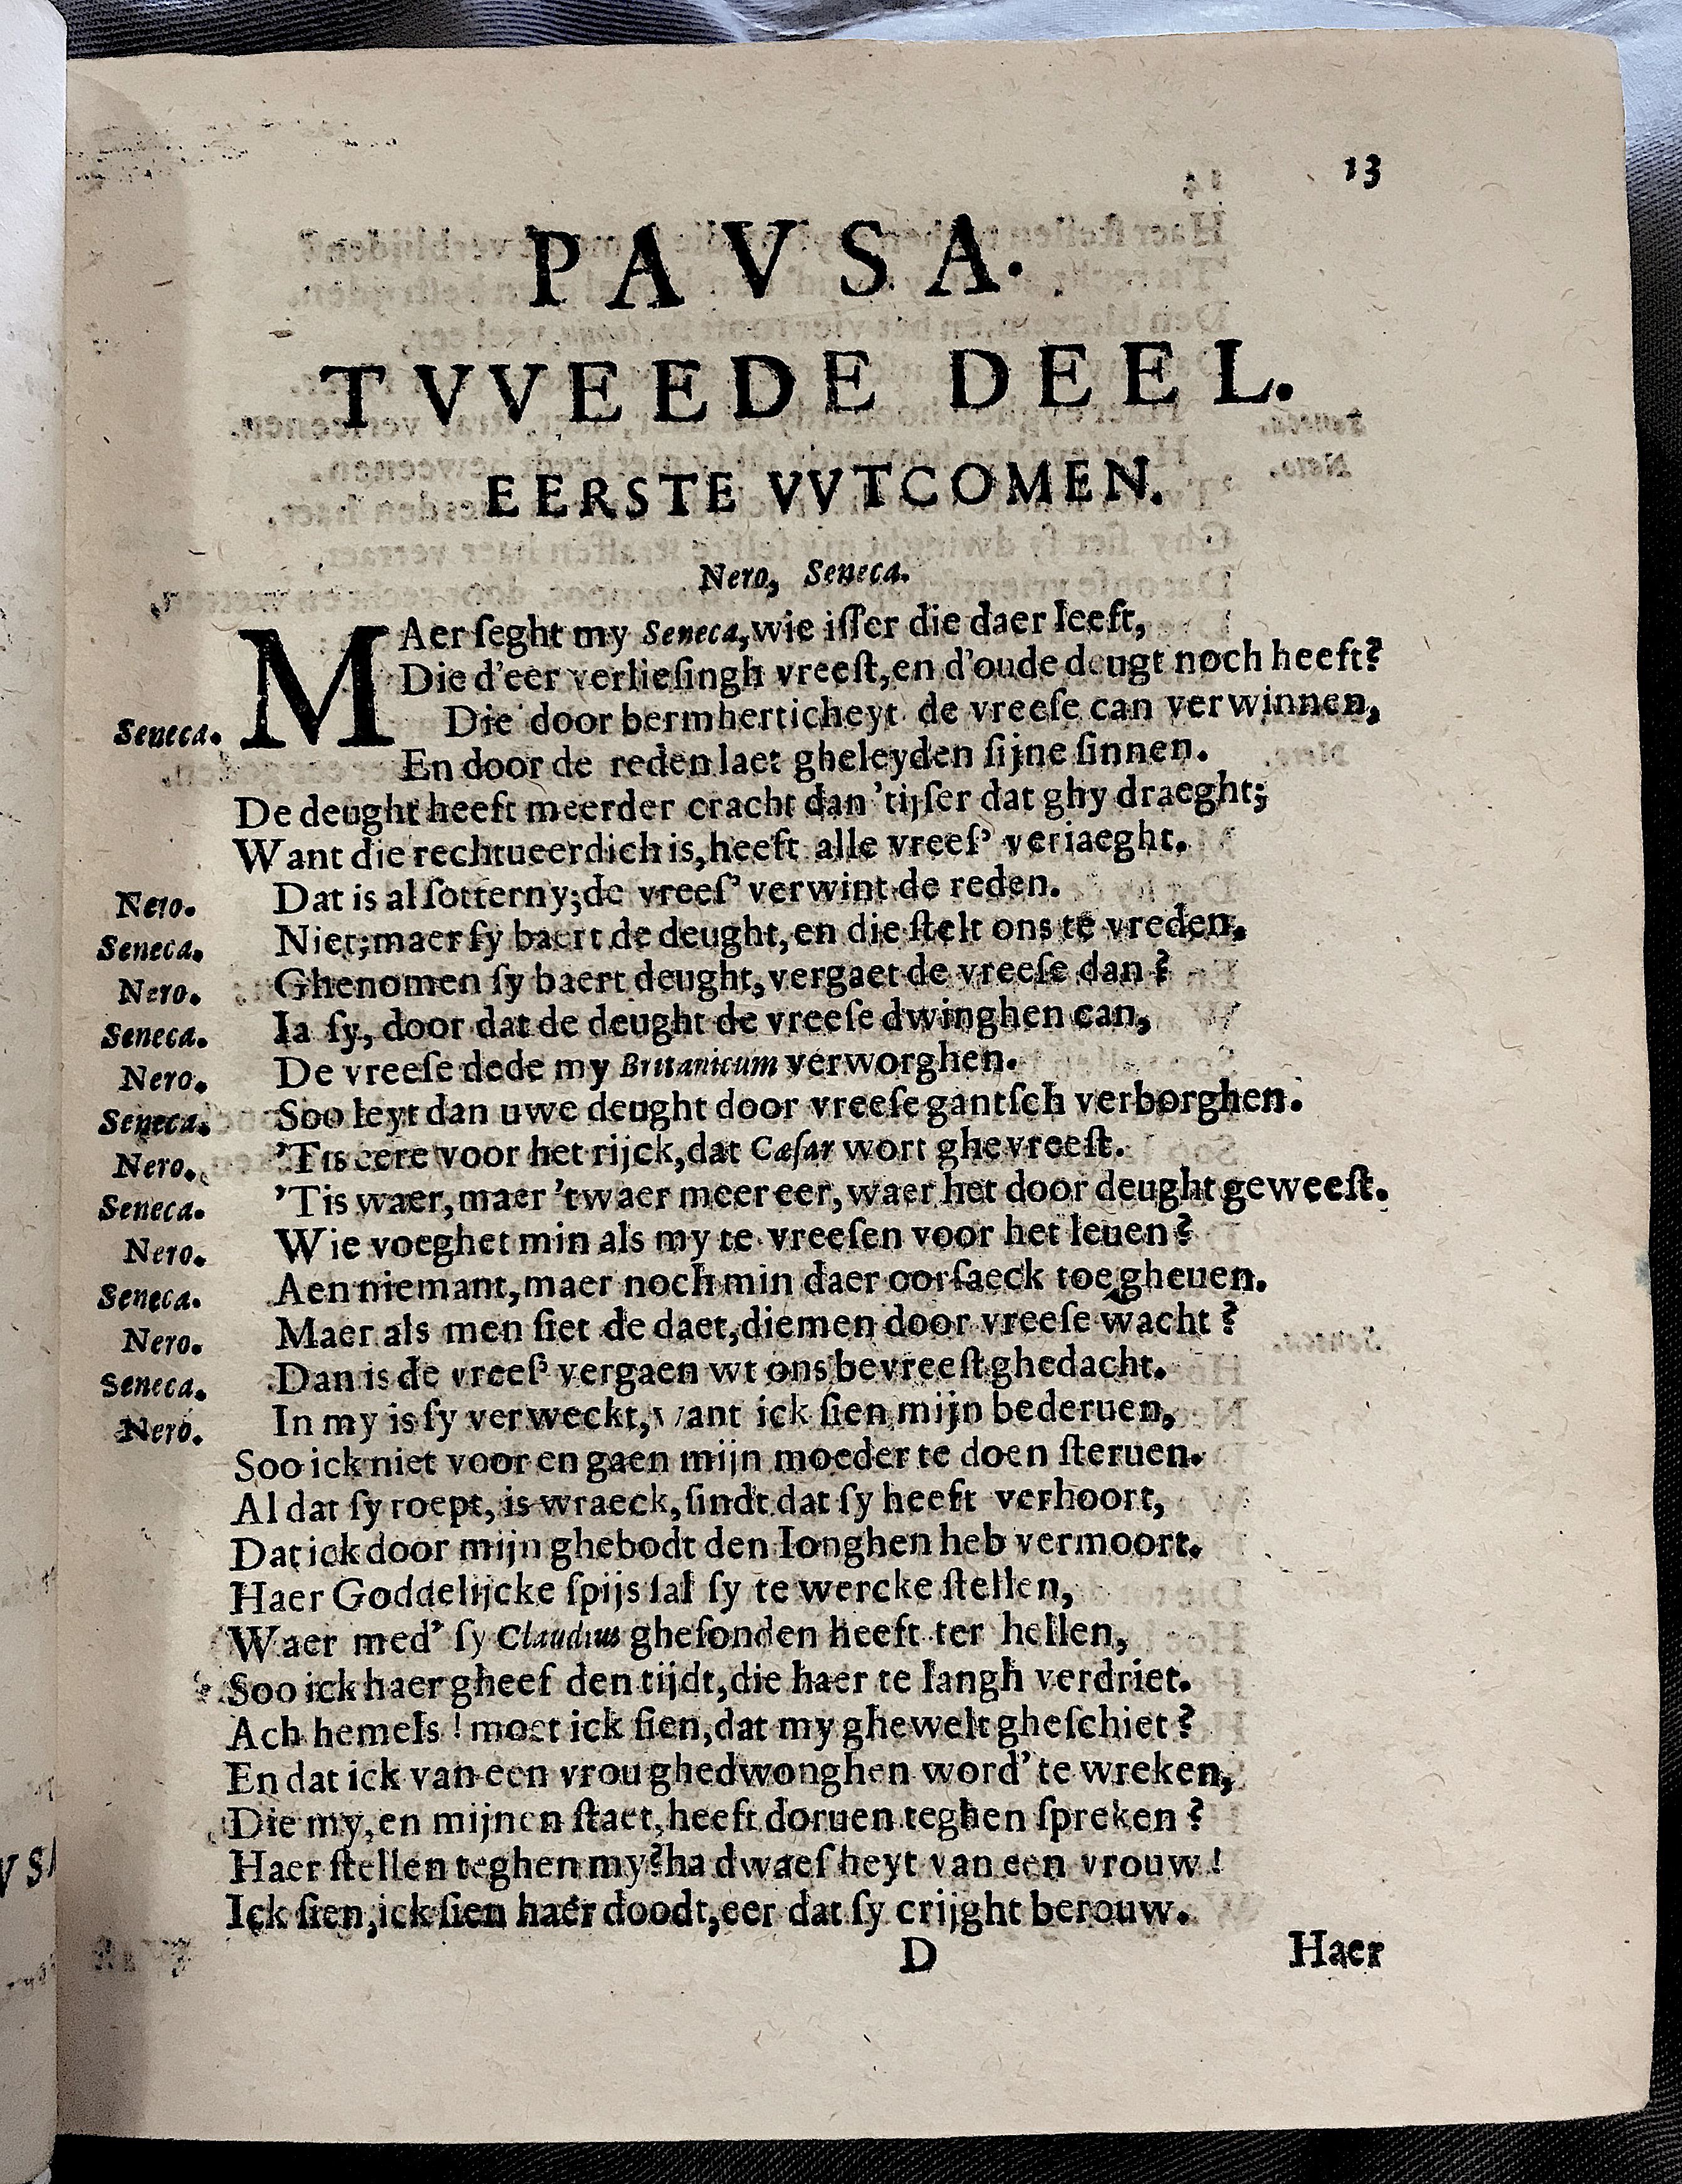 13
PAVSA.
TVVEEDE DEEL.
EERSTE VVTCOMEN.
Nero, Seneca.
MAer ſeght my Seneca, wie iſſer die daer leeft,
Die d'eer verlieſingh vreeſt, en d'oude deugt noch heeft?
Seneca. Die door bermherticheyt de vreeſe can verwinnen,
En door de reden laet gheleyden ſijne ſinnen.
De deught heeft meerder cracht dan 'tijſer dat ghy draeght;
Want die rechtueerdich is, heeft alle vreeſ' veriaeght.
Nero. Dat is al ſotterny; de vreeſ' verwint de reden.
Seneca. Niet; maer ſy baert de deught, en die ſtelt ons te vreden.
Nero. Ghenomen ſy baert deught, vergaet de vreeſe dan?
Seneca. Ia ſy, door dat de deught de vreeſe dwinghen can,
Nero. De vreeſe dede my Britanicum verworghen.
Seneca. Soo leyt dan uwe deught door vreeſe gantſch verborghen.
Nero. 'Tis eere voor het rijck, dat Cæſar wort ghevreeſt.
Seneca. 'Tis waer, maer 'twaer meer eer, waer het door deught geweeſt.
Nero. Wie voeghet min als my te vreeſen voor het leuen?
Seneca. Aen niemant, maer noch min daer oorſaeck toe gheuen.
Nero. Maer als men ſiet de daet, diemen door vreeſe wacht?
Seneca. Dan is de vreeſ' vergaen wt ons bevreeſt ghedacht.
Nero. In my is ſy verweckt, want ick ſien mijn bederuen,
Soo ick niet voor en gaen mijn moeder te doen ſteruen.
Al dat ſy roept, is wraeck, ſindt dat ſy heeft verhoort,
Dat ick door mijn ghebodt den Ionghen heb vermoort.
Haer Goddelijcke ſpijs ſal ſy te wercke ſtellen,
Waer med' ſy Claudius gheſonden heeft ter hellen,
Soo ick haer gheef den tijdt, die haer te langh verdriet.
Ach hemels! moet ick ſien, dat my ghewelt gheſchiet?
En dat ick van een vrou ghedwonghen word' te wreken,
Die my, en mijnen ſtaet, heeft doruen teghen ſpreken?
Haer ſtellen teghen my? ha dwaeſheyt van een vrouw!
Ick ſien, ick ſien haer doodt, eer dat ſy crijght berouw.
D Haer